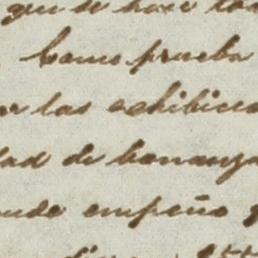 que se hace
Como prueba
las exhibicio
dad de bonanza
empeño